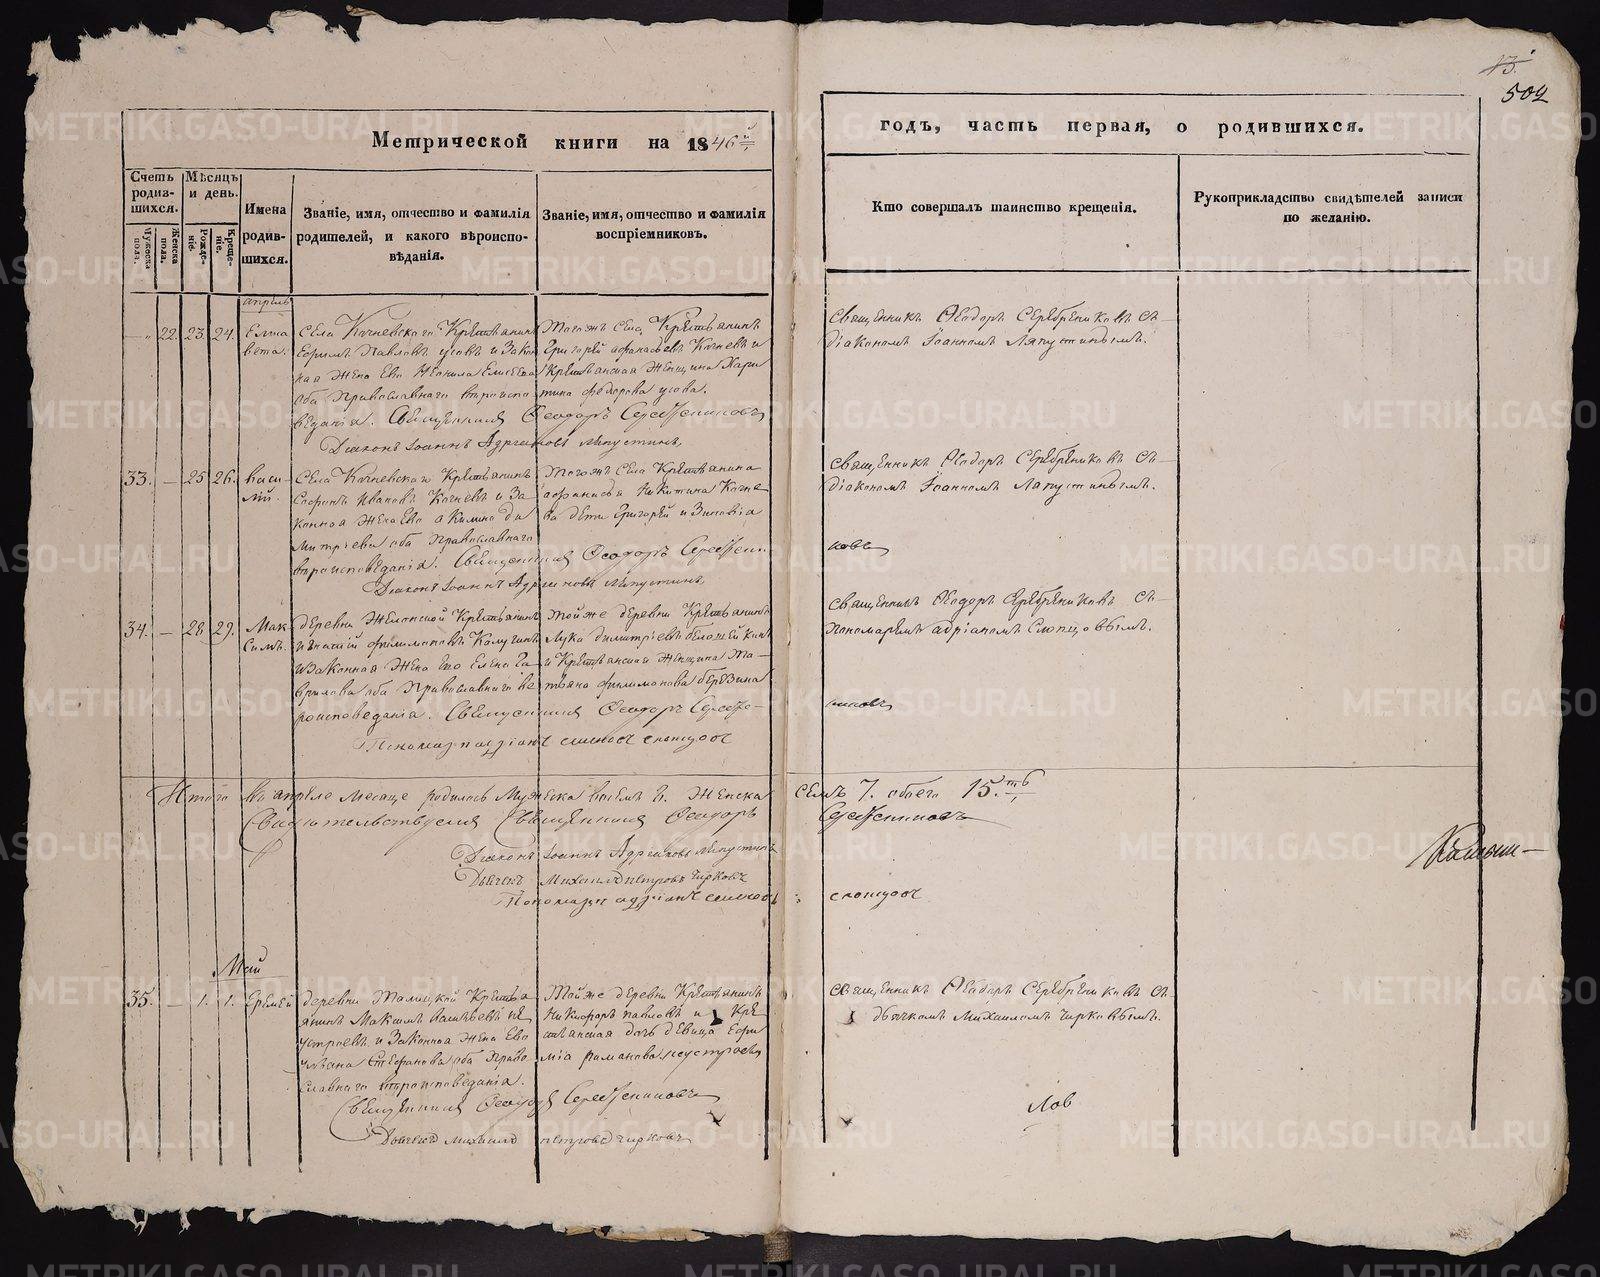 13.
502
Метрической книги на 1846й
годъ, часть первая, о родившихся.
Счетъ родив-шихся.
Мужеска пола.
Женска пола.
Мѣсяцъ и день.
Рожде-нія.
Креще-нія.
Имена родив-шихся.
Званіе, имя, отчество и фамилія родителей, и какого вѣроиспо-вѣданія.
Званіе, имя, отчество и фамилія воспріемниковъ.
Кто совершалъ таинство крещенія.
Рукоприкладство свидѣтелей записи по желанію.
апрель
22. 23. 24. Елиса
вета.
Села Кочневскаго Крестьянинъ
Ефимъ Павловъ усовъ и Закон
ная Жена Его
оба Православнаго вероиспо
веданія. Священникъ Феодоръ Серебренниковъ
Диаконъ Іоаннъ Адріановъ Ляпустинъ
Тогожъ Села Крестьянинъ
Григорей афанасьевъ Кочневъ и
Крестьянская Женщина Хари
тина федорова усова.
священникъ Феодоръ Серебрениковъ съ
діакономъ Іоанномъ Ляпустинымъ.
33. — 25 26. Васи
лій.
Села Кочневскаго Крестьянинъ
Софонъ Ивановъ Кочневъ и За
конная Жена Его акилина Ди
митріева оба Православнаго
вероисповеданія. Священникъ Феодоръ Серебрен
Диаконъ Іоаннъ Адріановъ Ляпустинъ
Тогожъ Села Крестьянина
афанасья Никитина Кочне
ва дети Григорей и Зиновія
священникъ Феодоръ Серебрениковъ съ
діакономъ Іоанномъ Ляпустинымъ.
никовъ
34. — 28. 29. Мак
симъ.
деревни Крестьянинъ
игнатій филимоновъ Калугинъ
и Законная Жена Его Елена Га
врилова оба Православнаго ве
роисповеданія. Священникъ Феодоръ Серебре
Пономарь адріанъ слопцовъ
Тойже деревни Крестьянинъ
Лука димитріевъ
и Крестьянская Женщина Та
тьяна филимонова березина
священникъ Феодоръ Серебрениковъ съ
Пономаремъ адріаномъ Слопцовымъ.
никовъ
Итого въ апреле месяце родилось Мужеска восемь 8. Женска семь 7. обоего 15.ть
Свидетельствуемъ Священникъ Феодоръ Серебренниковъ
Диаконъ Іоаннъ Адріановъ Ляпустинъ
Дьячекъ Михаилъ петровъ Чирковъ
Пономарь адріанъ слопцовъ
Май
35. — 1. 1. Еремей
деревни Талицкой Кресть
янинъ Максимъ Васильевъ не
устроевъ и Законная Жена Его
Стефанова оба Право
славнаго вероисповеданія.
Священникъ Феодоръ Серебренниковъ
Дьячекъ Михаилъ петровъ Чирковъ
Тойже деревни Крестьянинъ
Никифоръ павловъ и Кре
стьянская дочь девица Ефи
мія романова неустроева
священникъ Феодоръ Серебрениковъ съ
дьячкомъ Михаиломъ Чирковымъ.
лов
METRIKI.GASO-URAL.RU